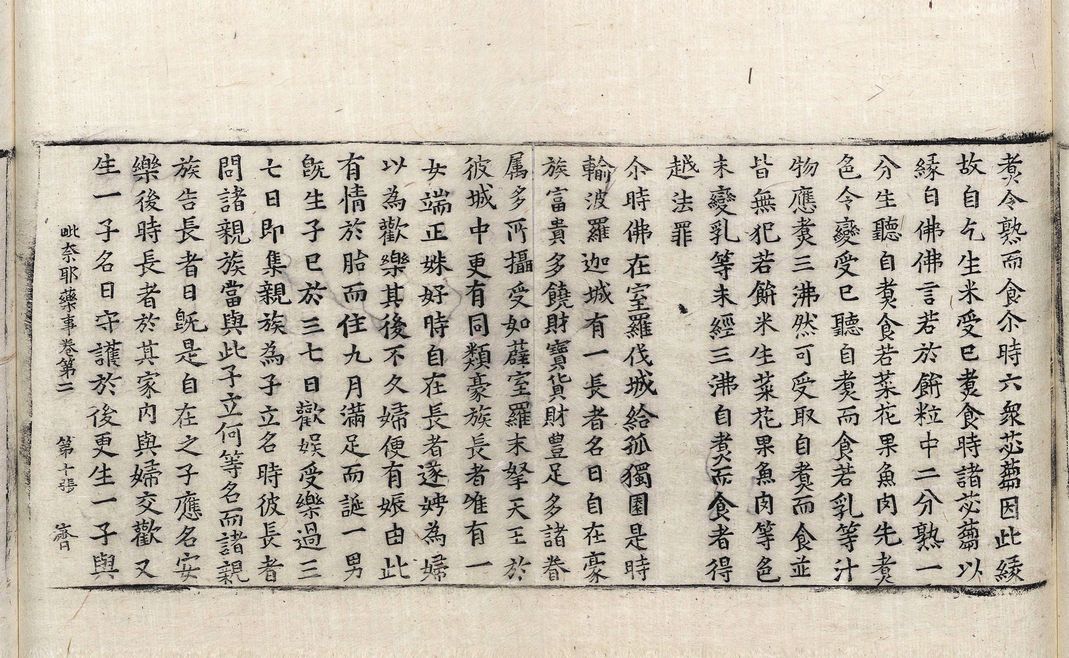 煑令熟而食尒時六衆苾蒭因此緣
故自乞生米受已煑食時諸苾蒭以
緣白佛佛言若於餅粒中二分熟一
分生聽自煑食若菜花果魚肉先煑
色令變受已聽自煑而食若乳等汁
物應煑三沸然可受取自煑而食並
皆無犯若餅米生菜花果魚肉等色
未變乳等未經三沸自煑而食者得
越法罪
尒時佛在室羅伐城給孤獨園是時
輸波羅迦城有一長者名曰自在豪
族富貴多饒財寶貨財豊足多諸眷
属多所攝受如薜室羅末拏天王於
彼城中更有同類豪族長者唯有一
女端正姝好時自在長者遂娉為婦
以為歡樂其後不久婦便有娠由此
有情於胎而住九月滿足而誕一男
旣生子已於三七日歡娛受樂過三
七日即集親族為子立名時彼長者
問諸親族當與此子立何等名而諸親
族告長者曰旣是自在之子應名安
樂後時長者於其家內與婦交歡又
生一子名曰守護於後更生一子與
毗奈耶藥事卷第二 第十張 齊